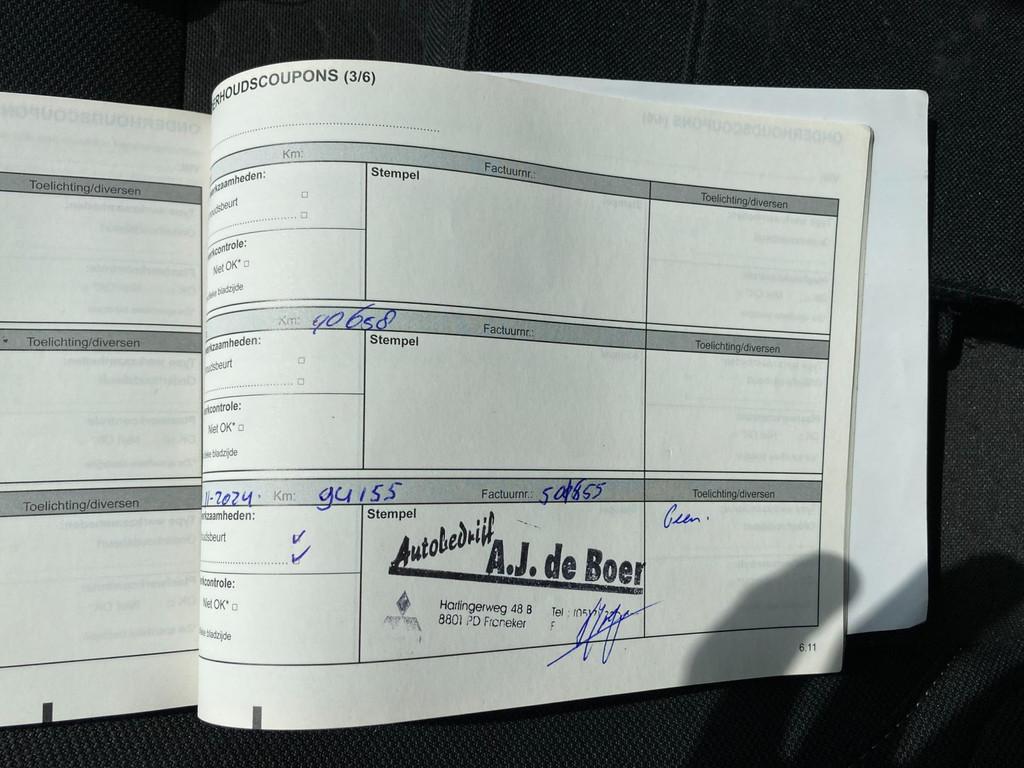 Toelichting/diversen
Toelichting/diversen
Toelichting/diversen
ERHOUDSCOUPONS (3/6)
Km: Factuurnr.:
rkzaamheden: Stempel Toelichting/diversen
oudsbeurt
rkcontrole:
Niet OK* □
bladzijde
Km: 90658 Factuurnr.:
rkzaamheden: Stempel Toelichting/diversen
oudsbeurt
rkcontrole:
Niet OK* □
bladzijde
11-2024. Km: 94155 Factuurnr.: Toelichting/diversen
rkzaamheden: Stempel Geen.
udsbeurt ✓
✓
Autobedrijf
A.J. de Boer
rkcontrole:
Niet OK* □
bladzijde
Harlingerweg 48 B Tel :
8801 PD Franeker F
6.11